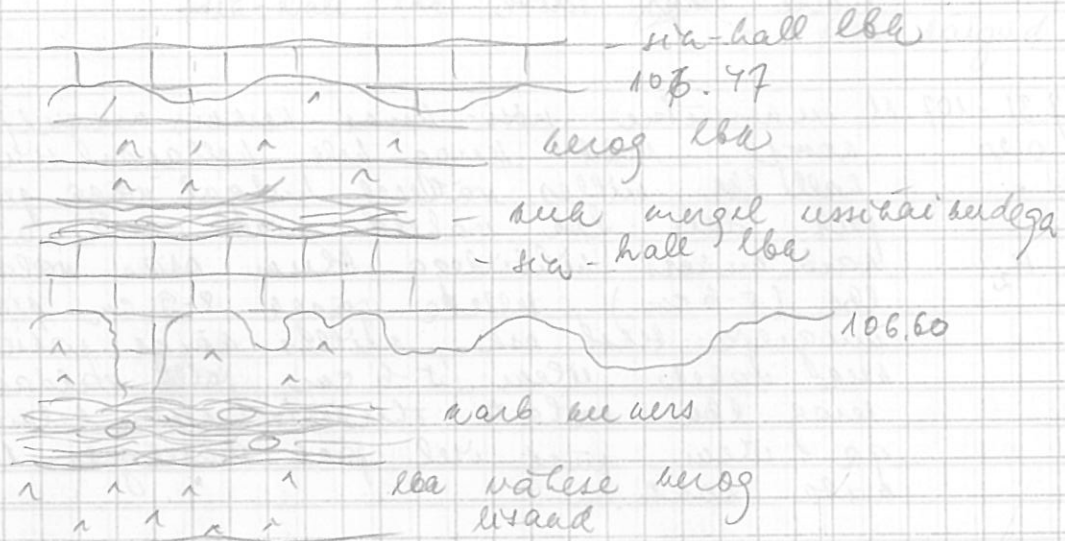 - sin-hall lbk
106.47
kerog lbk
- muk mergel ussikäikudega
- sin-hall lbk
106.60
karb kukers
lba vähese kerog
lisand